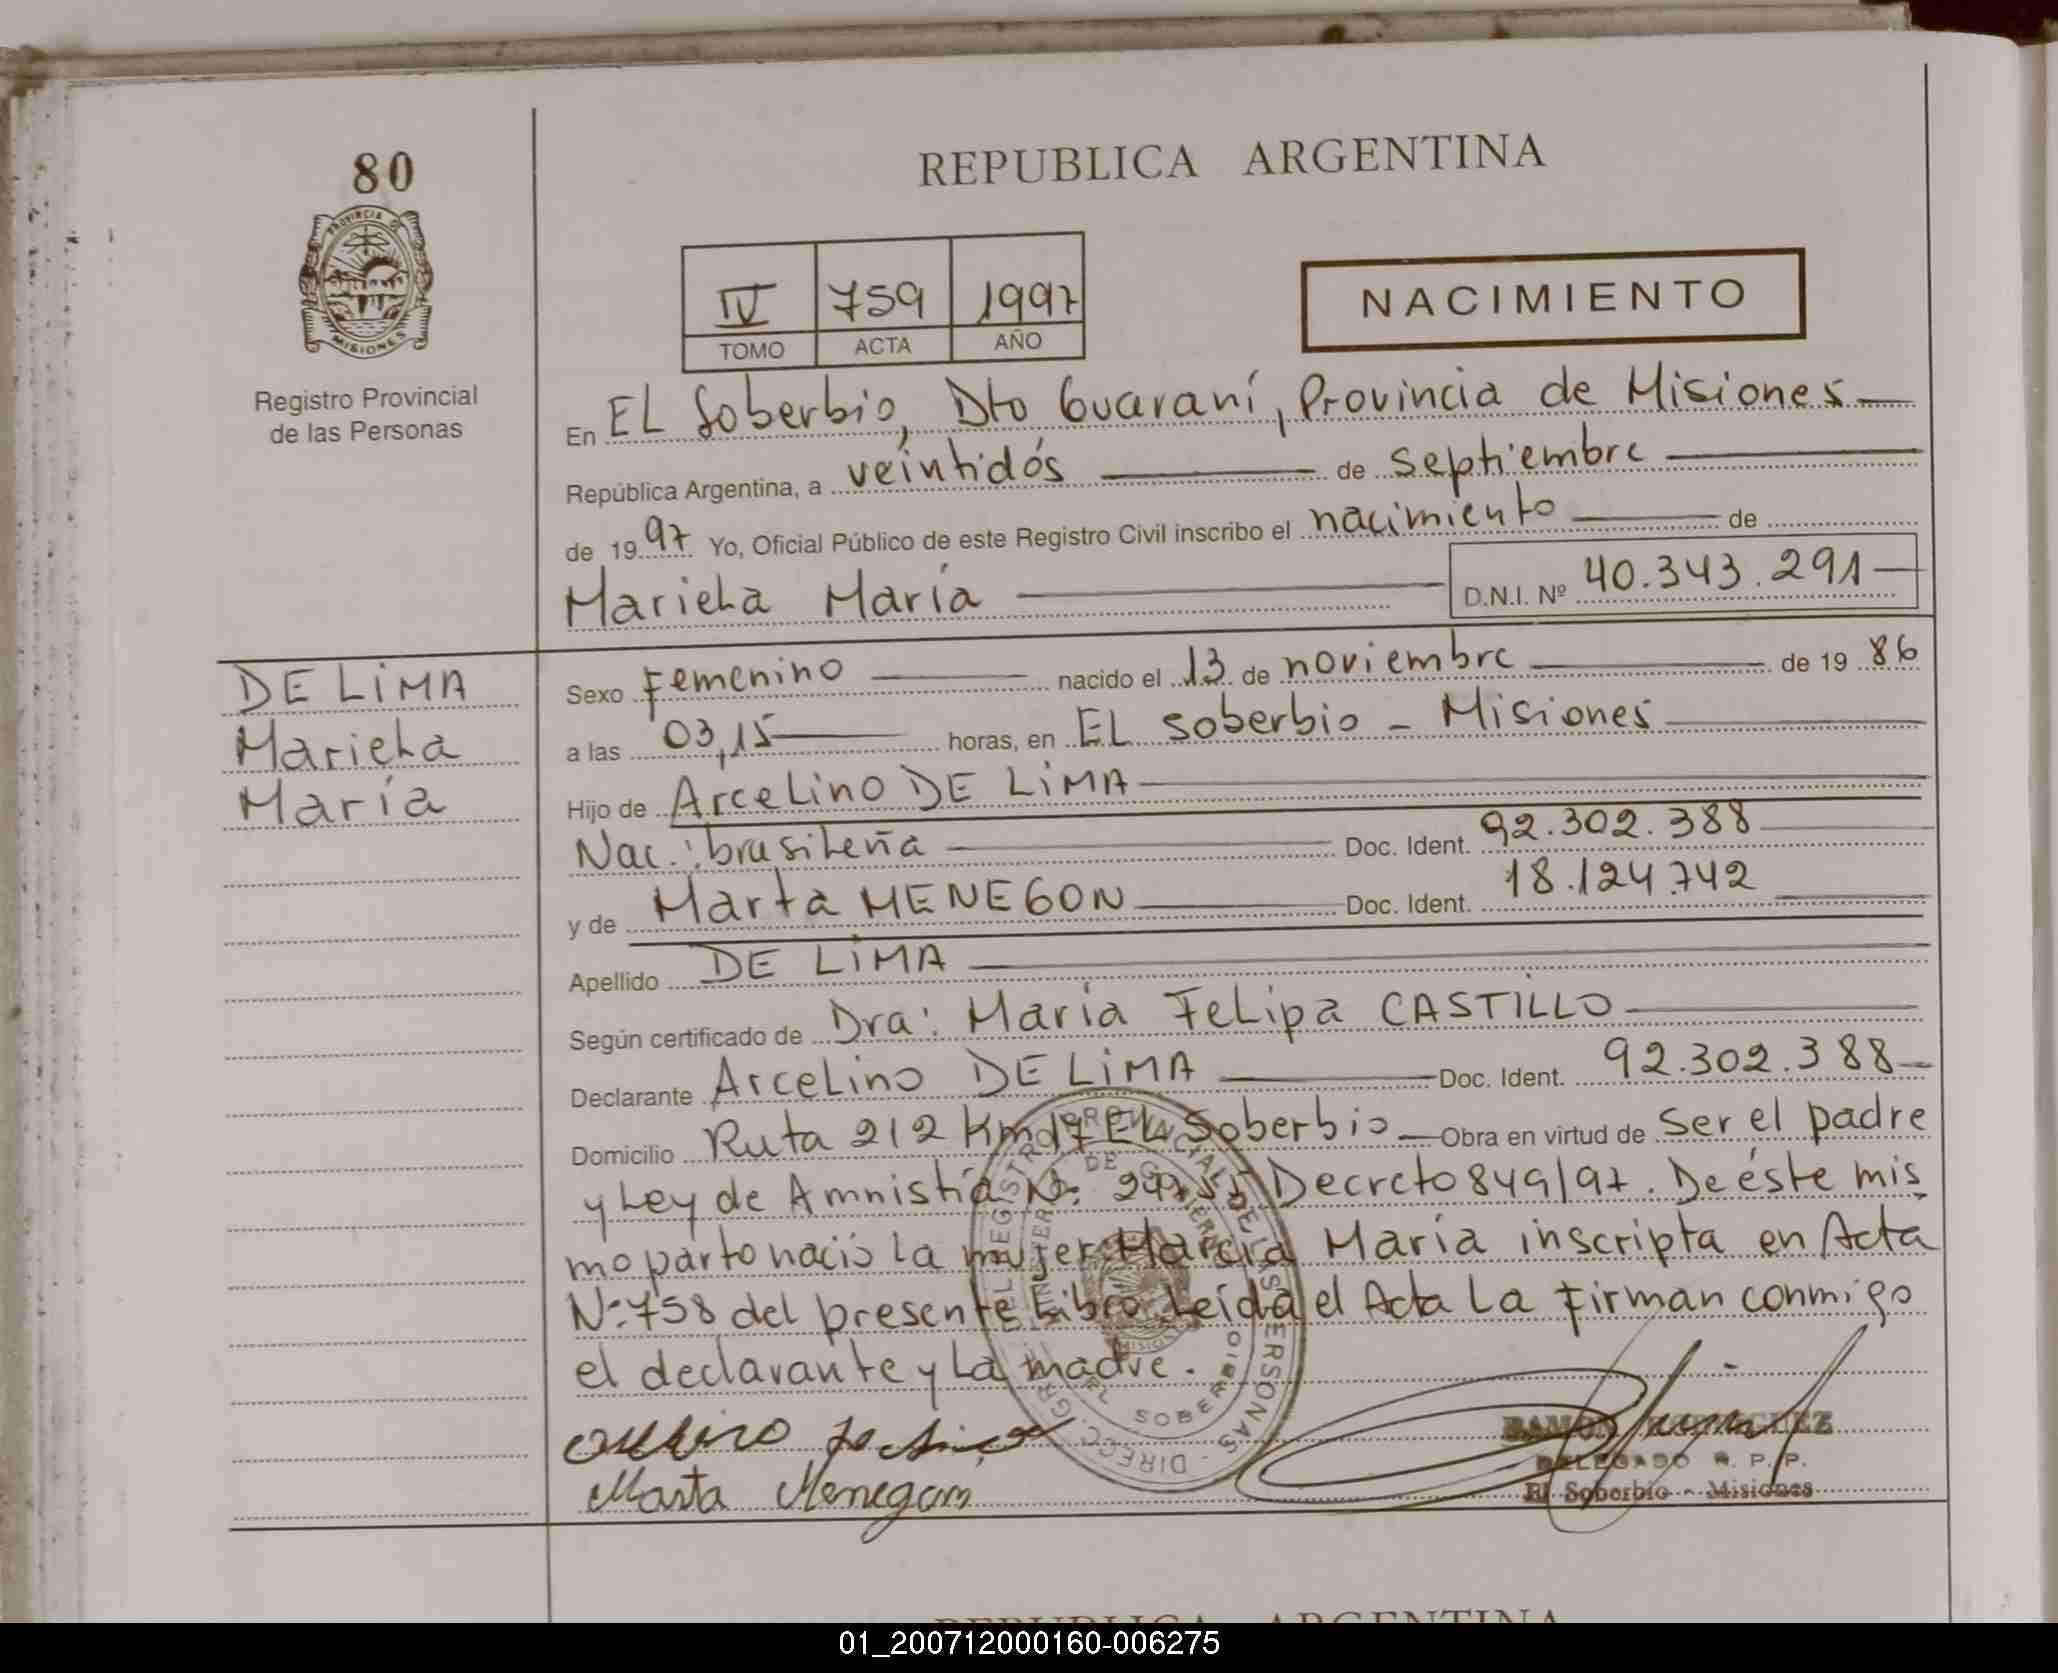 80
PROVINCIA DE
MISIONES
Registro Provincial
de las Personas
REPUBLICA ARGENTINA
IV 759 1997
TOMO ACTA AÑO
NACIMIENTO
En EL Soberbio, Dto Guaraní, Provincia de Misiones
República Argentina, a veintidós de septiembre
de 1997 Yo, Oficial Público de este Registro Civil inscribo el nacimiento de
Mariela María D.N.I. Nº 40.343.291
DE LIMA
Mariela
María
Sexo Femenino nacido el 13 de noviembre de 1986
a las 03,15 horas, en EL soberbio - Misiones
Hijo de Arcelino DE LIMA
Nac.: brasileña Doc. Ident. 92.302.388
y de Marta MENEGON Doc. Ident. 18.124.742
Apellido DE LIMA
Según certificado de Dra: María Felipa CASTILLO
Declarante Arcelino DE LIMA Doc. Ident. 92.302.388
Domicilio Ruta 212 Km 17 EL Soberbio Obra en virtud de ser el padre
y Ley de Amnistía Nº Decreto 849/97. De éste mis
mo parto nació la mujer Marcia María inscripta en Acta
Nº 758 del presente Libro. Leída el Acta La firman conmigo
el declarante y La madre.
Marta Menegon
DELEGADO R. P. P.
El Soberbio - Misiones
REPUBLICA ARGENTINA
01_200712000160-006275